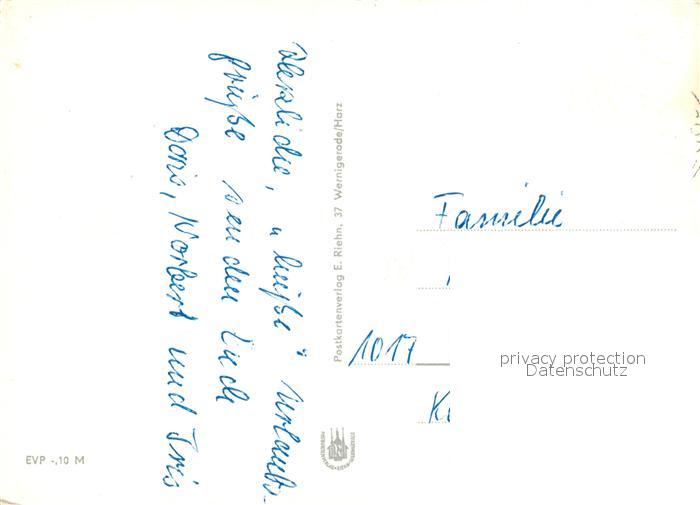 Herzliche, „heiße“ Urlaubs-
grüße senden Euch
Doris, Norbert und Iris
Postkartenverlag E. Riehn, 37 Wernigerode/Harz
Familie
1017
K
privacy protection
Datenschutz
EVP -,10 M